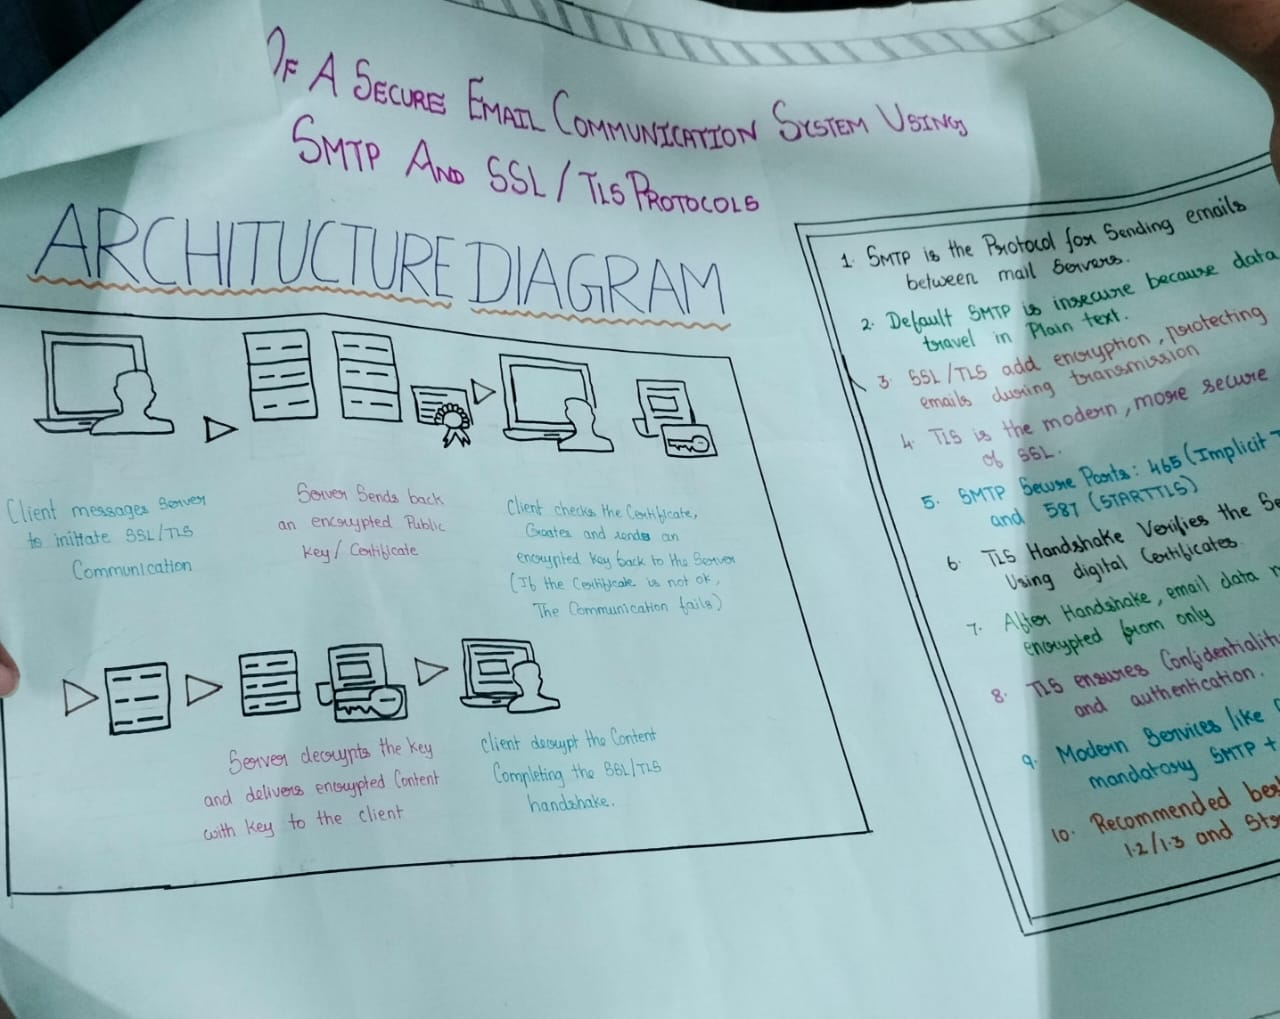 OF A SECURE EMAIL COMMUNICATION SYSTEM USING
SMTP AND SSL/TLS PROTOCOLS
ARCHITUCTURE DIAGRAM
Client messages Server
to initiate SSL/TLS
Communication
Server Sends back
an encrypted Public
Key/Certificate
Client checks the Certificate,
Creates and sends an
encrypted key back to the Server
(If the Certificate is not ok,
The Communication fails)
Server decrypts the key
and delivers encrypted Content
with key to the client
client decrypt the Content
Completing the SSL/TLS
handshake.
1. SMTP is the Protocol for Sending emails
between mail Servers.
2. Default SMTP is insecure because data
travel in Plain text.
3. SSL/TLS add encryption, protecting
emails during transmission
4. TLS is the modern, more secure
of SSL.
5. SMTP Secure Ports: 465 (Implicit
and 587 (STARTTLS)
6. TLS Handshake Verifies the
Using digital Certificates.
7. After Handshake, email data
encrypted from only
8. TLS ensures
and authentication.
9. Modern Services like
mandatory SMTP +
10. Recommended
1.2/1.3 and